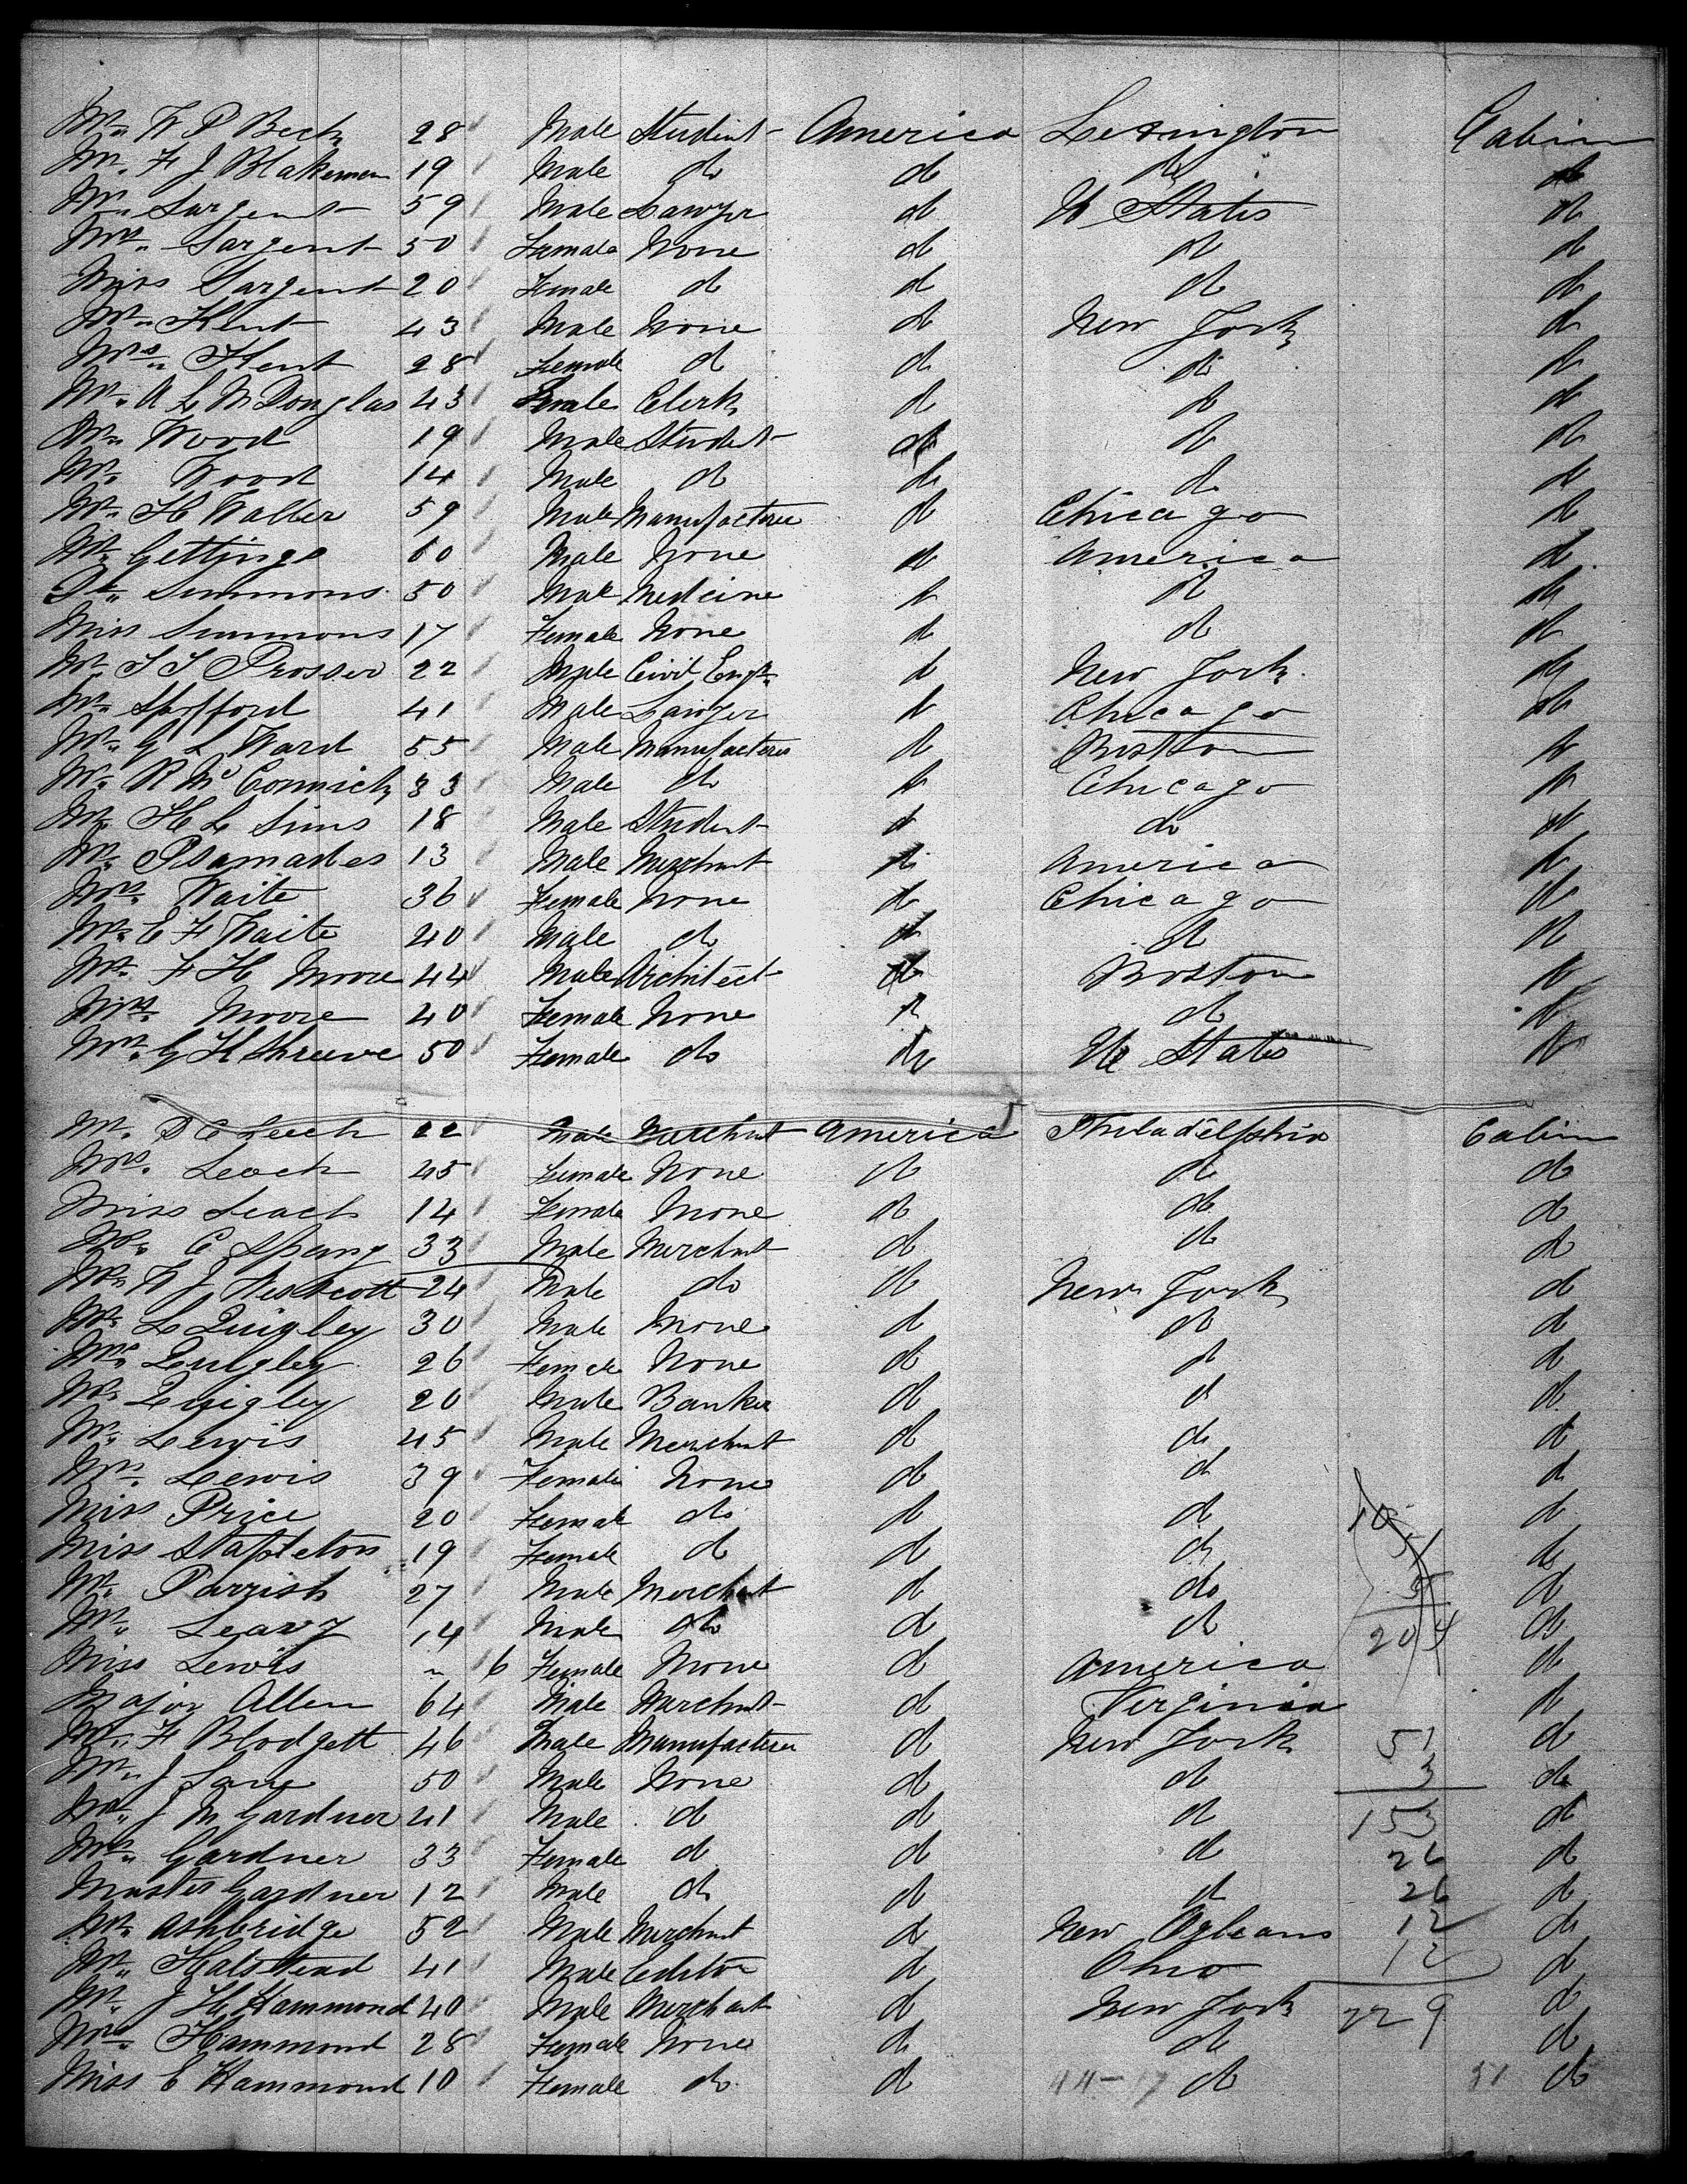 Mr. W P Beck 28 Male Student America Lexington Cabin
Mr. F J Blakeman 19 Male do do do do
Mr. Sargent 59 Male Lawyer do U States do
Mrs. Sargent 50 Female None do do do
Miss Sargent 20 Female do do do do
Mr. Kent 43 Male None do New York do
Mrs. Kent 28 Female do do do do
Mr. A L M Douglas 43 Male Clerk do do do
Mr. Wood 19 Male Student do do do
Mr. Wood 14 Male do do do do
Mr. H Waller 59 Male Manufacturer do Chicago do
Mr. Gettings 60 Male None do America do
Dr. Simmons 50 Male Medicine do do do
Miss Simmons 17 Female None do do do
Mr. Prosser 22 Male Civil Engr. do New York do
Mr. Spofford 41 Male Lawyer do Chicago do
Mr. G L Ward 55 Male Manufacturer do Boston do
Mr. R Mc Cormick 33 Male do do Chicago do
Mr. H L Sims 18 Male Student do do do
Mr. 13 Male Merchant do America do
Mrs. Waite 36 Female None do Chicago do
Mr. E F Waite 40 Male do do do do
Mr. F H Moore 44 Male Architect do Boston do
Mrs. Moore 40 Female None do do do
Mrs. G H Shreeve 50 Female do do U States do
Mr. Leech 22 Male Merchant America Philadelphia Cabin
Mrs. Leech 45 Female None do do do
Miss Leach 14 Female None do do do
Mr. C Spang 33 Male Merchant do do do
Mr. W J Westcott 24 Male do do New York do
Mr. L Quigley 30 Male None do do do
Mrs. Quigley 26 Female None do do do
Mr. Quigley 20 Male Banker do do do
Mr. Lewis 45 Male Merchant do do do
Mrs. Lewis 39 Female None do do do
Miss Price 20 Female do do do do
Miss Stapleton 19 Female do do do do
Mr. Parrish 27 Male Merchant do do do
Mr. Leary 14 Male do do do 204 do
Miss Lewis 6 Female None do America do
Major Allen 64 Male Merchant do Virginia do
Mr. F Blodgett 46 Male Manufacturer do New York 51 do
Mr. J Lane 50 Male None do do 3 do
Mr. J M Gardner 41 Male do do do 153 do
Mrs. Gardner 33 Female do do do 26 do
Master Gardner 12 Male do do do 26 do
Mr. Ashbridge 52 Male Merchant do New Orleans 12 do
Mr. Halstead 41 Male Editor do Ohio 12 do
Mr. J H Hammond 40 Male Merchant do New York 229 do
Mrs. Hammond 28 Female None do do do
Miss E Hammond 10 Female do do 44-17 do 51 do